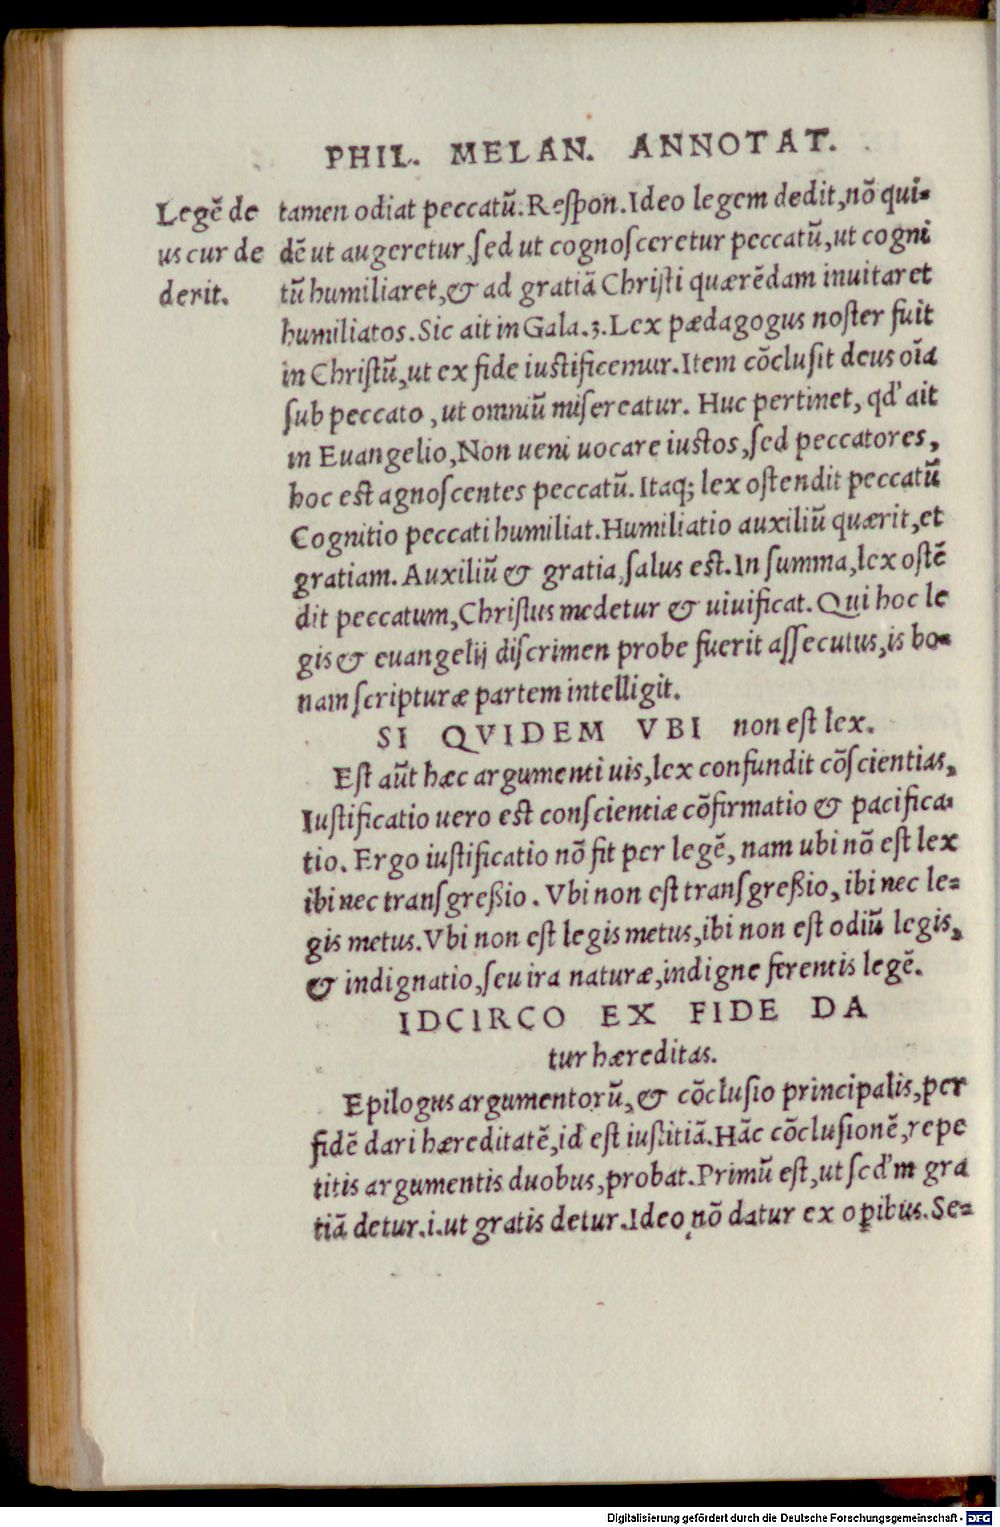 PHIL. MELAN. ANNOTAT.
Legē de
us cur de
derit.
tamen odiat peccatū. Respon. Ideo legem dedit, nō qui-
dē ut augeretur, sed ut cognosceretur peccatū, ut cogni
tū humiliaret, & ad gratiā Christi quærēdam inuitaret
humiliatos. Sic ait in Gala. 3. Lex pædagogus noster fuit
in Christū, ut ex fide iustificemur. Item cōclusit deus oīa
sub peccato, ut omniū misereatur. Huc pertinet, qd' ait
in Euangelio, Non ueni uocare iustos, sed peccatores,
hoc est agnoscentes peccatū. Itaq; lex ostendit peccatū
Cognitio peccati humiliat. Humiliatio auxiliū quærit, et
gratiam. Auxiliū & gratia, salus est. In summa, lex ostē
dit peccatum, Christus medetur & uiuificat. Qui hoc le
gis & euangelij discrimen probe fuerit assecutus, is bo-
nam scripturæ partem intelligit.
SI QVIDEM VBI non est lex.
Est aūt hæc argumenti uis, lex confundit cōscientias,
Iustificatio uero est conscientiæ cōfirmatio & pacifica-
tio. Ergo iustificatio nō fit per legē, nam ubi nō est lex
ibi nec transgreßio. Vbi non est transgreßio, ibi nec le-
gis metus. Vbi non est legis metus, ibi non est odiū legis,
& indignatio, seu ira naturæ, indigne ferentis legē.
IDCIRCO EX FIDE DA
tur hæreditas.
Epilogus argumentorū, & cōclusio principalis, per
fidē dari hæreditatē, id est iustitiā. Hāc cōclusionē, repe
titis argumentis duobus, probat. Primū est, ut scd'm gra
tiā detur .i. ut gratis detur. Ideo nō datur ex oꝑibus. Se-
Digitalisierung gefördert durch die Deutsche Forschungsgemeinschaft - DFG